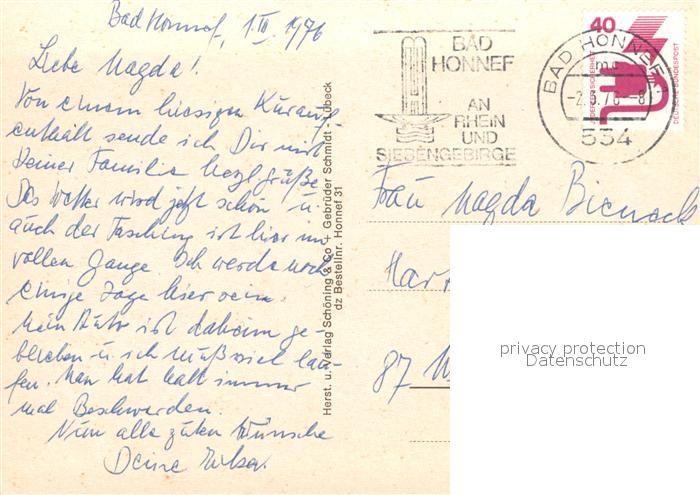 Bad Honnef, 1.III.1976
Liebe Magda!
Von einem hiesigen Kurauf-
enthalt sende ich Dir mit
Deiner Familie herzl. Grüße.
Das Wetter wird jetzt schön u.
auch der Fasching ist hier im
vollen Gange. Ich werde noch
einige Tage hier sein.
Mein Auto ist daheim ge-
blieben u. ich muß viel lau-
fen. Man hat halt immer
mal Beschwerden.
Nun alle guten Wünsche
Deine
Herst. u. Verlag Schöning & Co + Gebrüder Schmidt - Lübeck
dz Bestellnr. Honnef 31
BAD
HONNEF
AN
RHEIN
UND
SIEBENGEBIRGE
40
JEDERZEIT SICHERHEIT
DEUTSCHE BUNDESPOST
BAD HONNEF 1
mc
-2.3.76-8
534
Frau Magda
87
privacy protection
Datenschutz